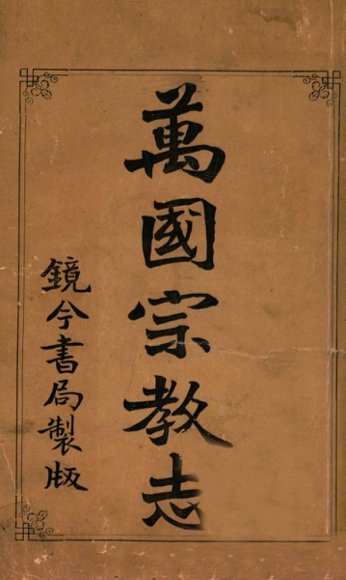 萬國宗教志
鏡今書局製版